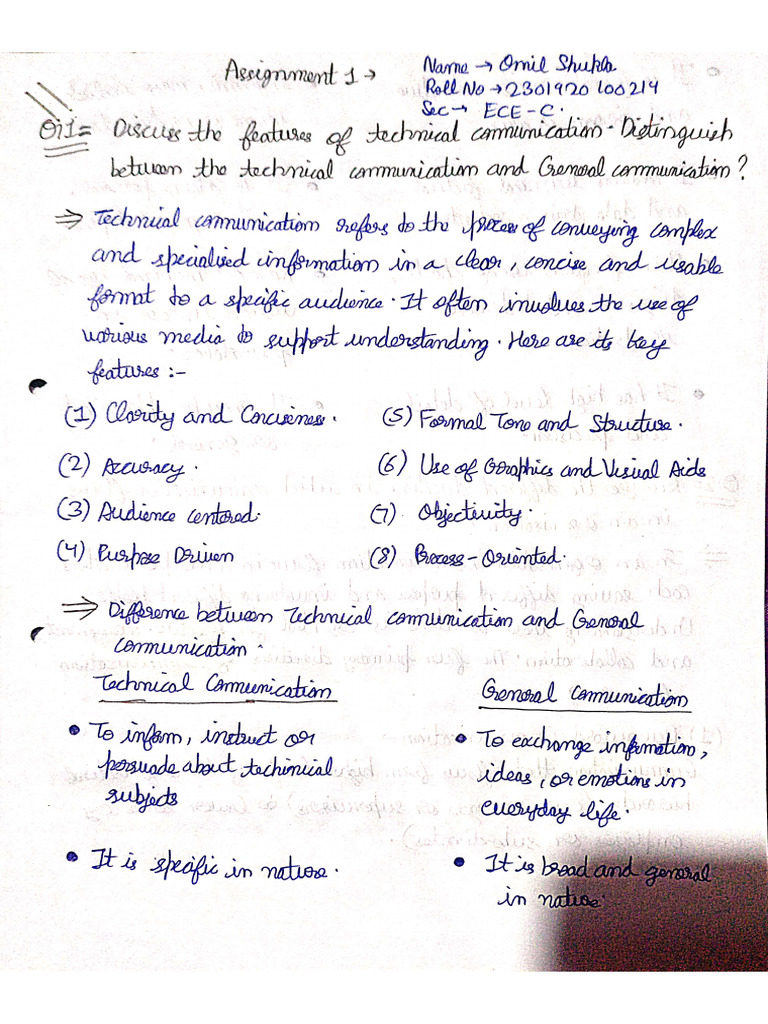 Assignment 1 →
Name → Omil Shukla
Roll No → 2301920100214
Sec → ECE - C.
Q:1= Discuss the features of technical communication. Distinguish
between the technical communication and General communication?
⇒ Technical communication refers to the process of conveying complex
and specialised information in a clear, concise and usable
format to a specific audience. It often involves the use of
various media to support understanding. Here are its key
features :-
(1) Clarity and Conciseness.
(2) Accuracy.
(3) Audience centered.
(4) Purpose Driven
(5) Formal Tone and Structure.
(6) Use of Graphics and Visual Aids
(7) Objectivity.
(8) Process-Oriented.
⇒ Difference between Technical communication and General
communication.
Technical Communication
• To inform, instruct or
persuade about techinical
subjects
• It is specific in nature.
General communication
• To exchange information,
ideas, or emotions in
everyday life.
• It is broad and general
in nature.